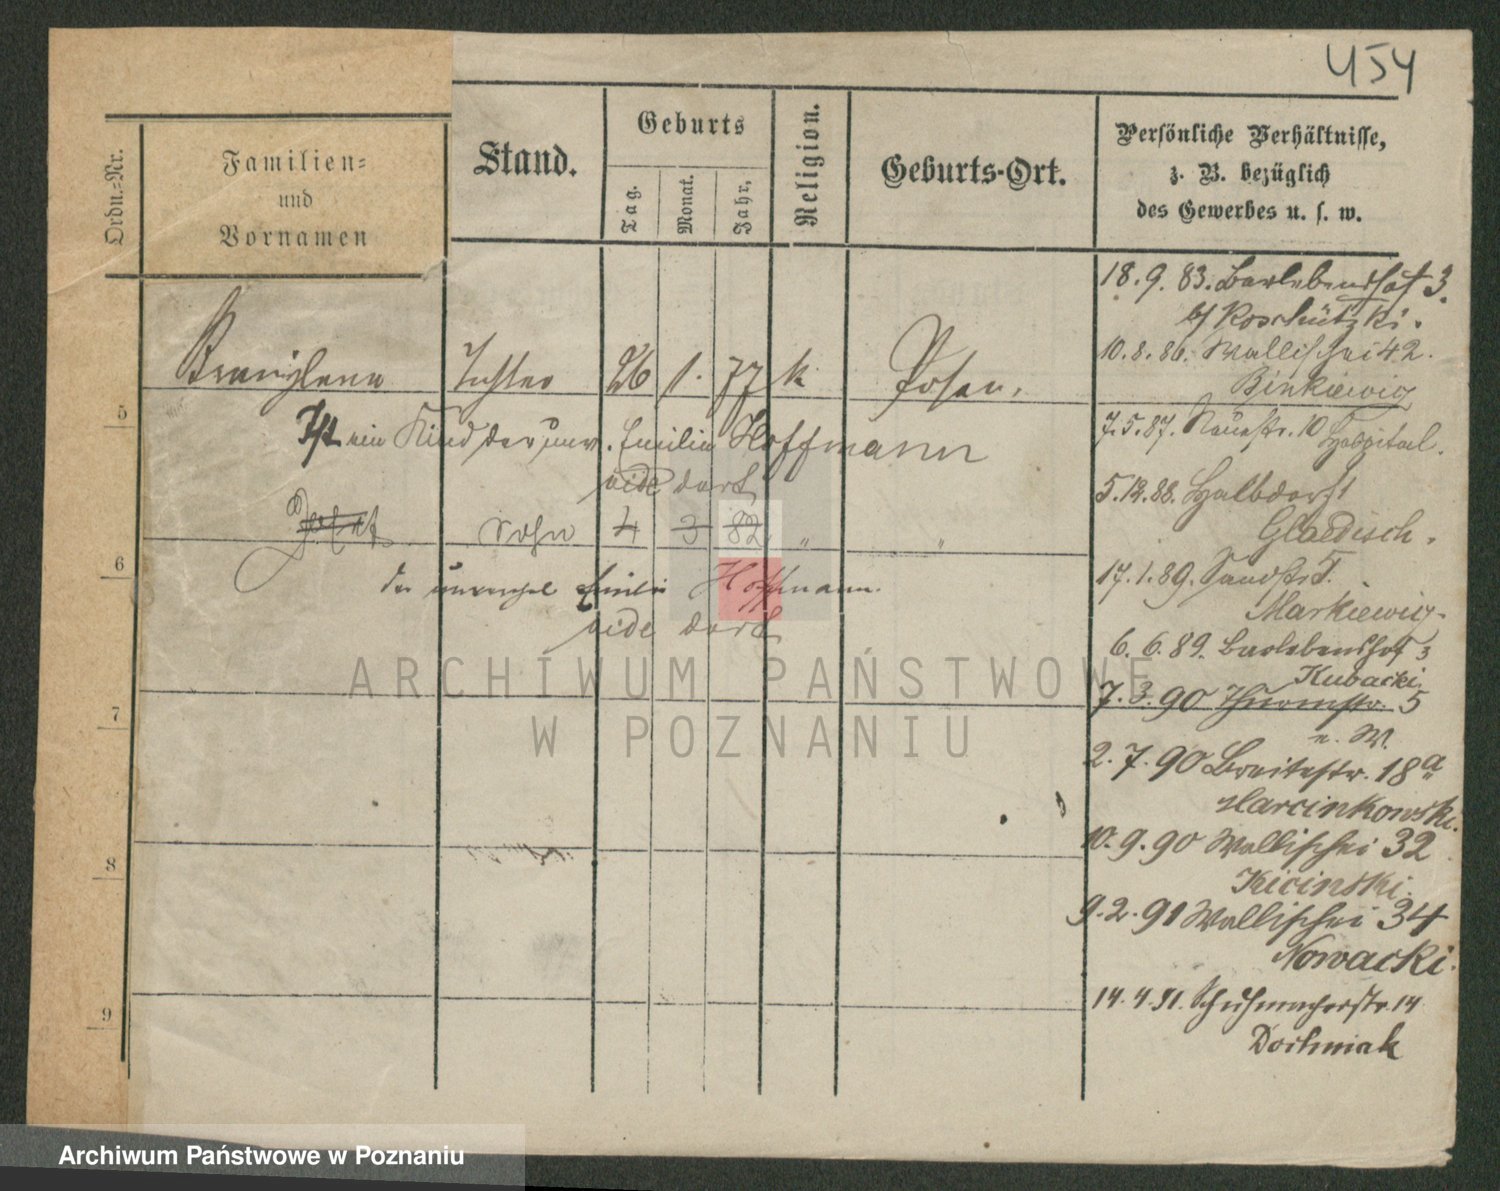 454
Ordn.-Nr.
Familien-
und
Vornamen
Stand.
Geburts
Tag.
Monat.
Jahr.
Religion.
Geburts-Ort.
Persönliche Verhältnisse,
z. B. bezüglich
des Gewerbes u. s. w.
18. 9. 83. Barlebenshof 3.
b/ Koschützki.
10. 8. 86. Wallischei 42.
Binkiewicz
Tochter 26 1. 77 k. Posen.
5
Ist ein Kind der unv. Emilie Hoffmann
vide dort
7. 5. 87. Neuestr. 10 Hospital.
5. 12. 88. Halbdorf 1
Gladisch.
Sohn 4 3 82 " "
6
der unverehel Emilie Hoffmann.
vide dort
17. 1. 89. Sandstr 5.
Markiewicz
6. 6. 89. Barlebenshof 3
Kubacki
7. 3. 90 Thurmstr. 5
n. W.
7
2. 7. 90 Breitestr. 18a
Marcinkowski.
10. 9. 90 Wallischei 32
Kicinski.
8
9. 2. 91 Wallischei 34
Nowacki.
14. 4. 91. Schuhmacherstr. 14
Dochniak
9
ARCHIWUM PAŃSTWOWE
W POZNANIU
Archiwum Państwowe w Poznaniu